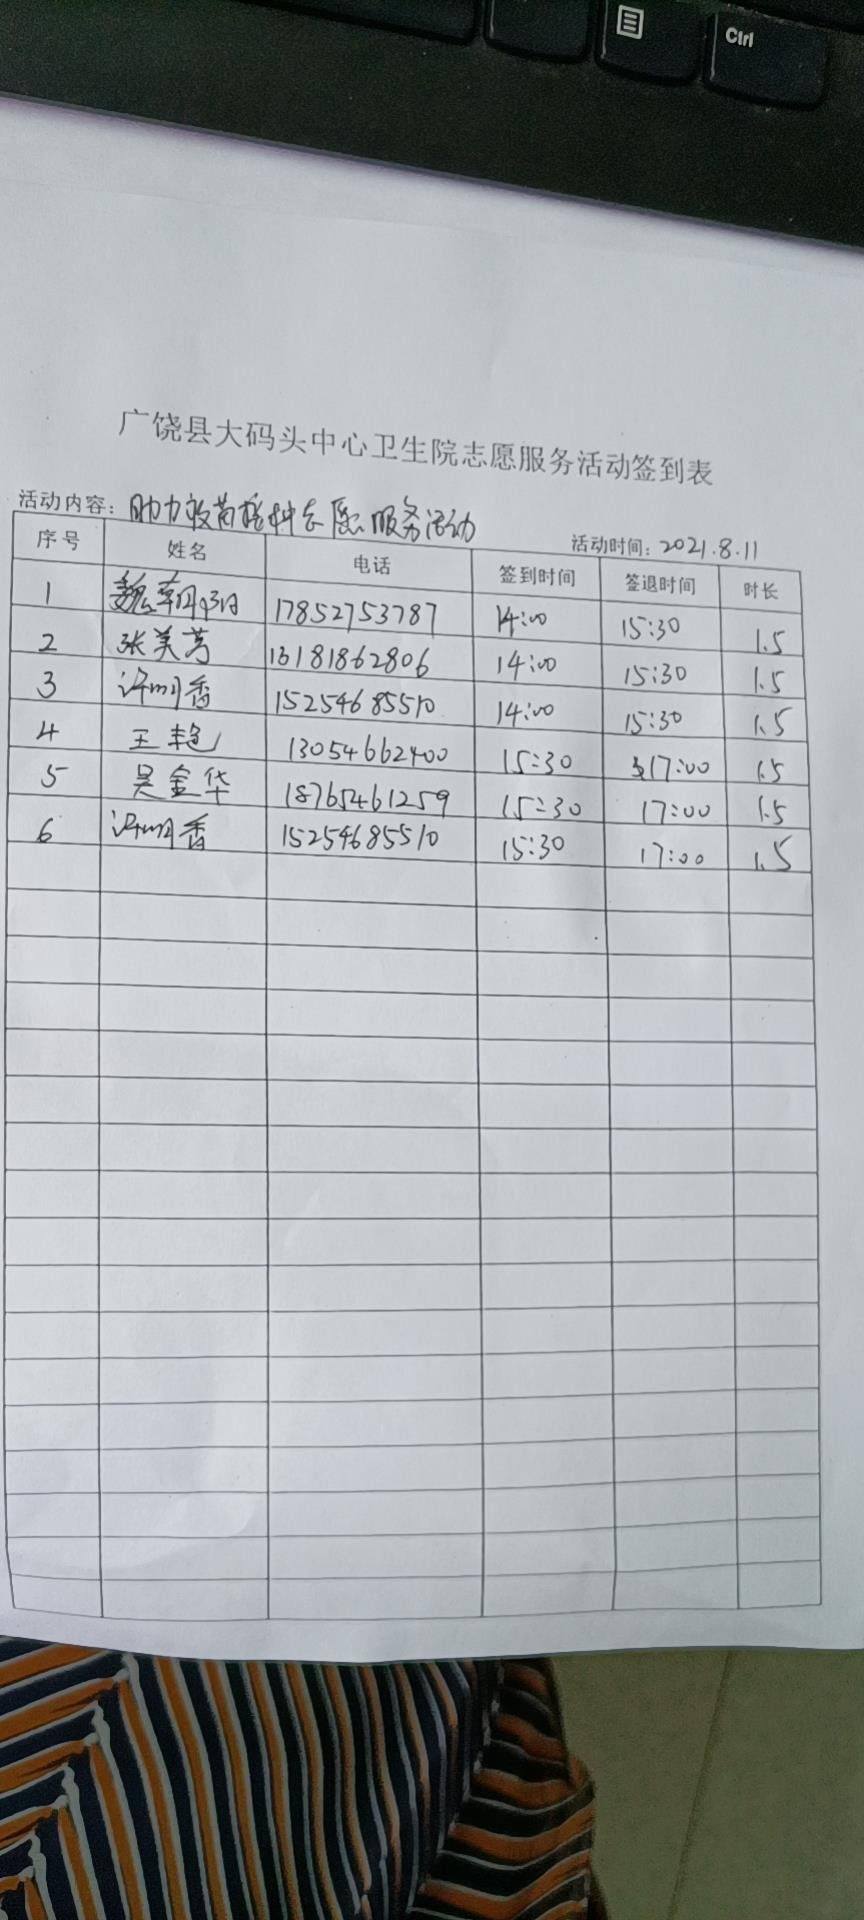 Ctrl
广饶县大码头中心卫生院志愿服务活动签到表
活动内容：助力疫苗接种志愿服务活动 活动时间：2021.8.11
序号 姓名 电话 签到时间 签退时间 时长
1 魏朝阳 17852753787 14:00 15:30 1.5
2 张美芳 13181862806 14:00 15:30 1.5
3 许明香 15254685510 14:00 15:30 1.5
4 王艳 13054662400 15:30 17:00 1.5
5 吴金华 18765461259 15:30 17:00 1.5
6 许明香 15254685510 15:30 17:00 1.5